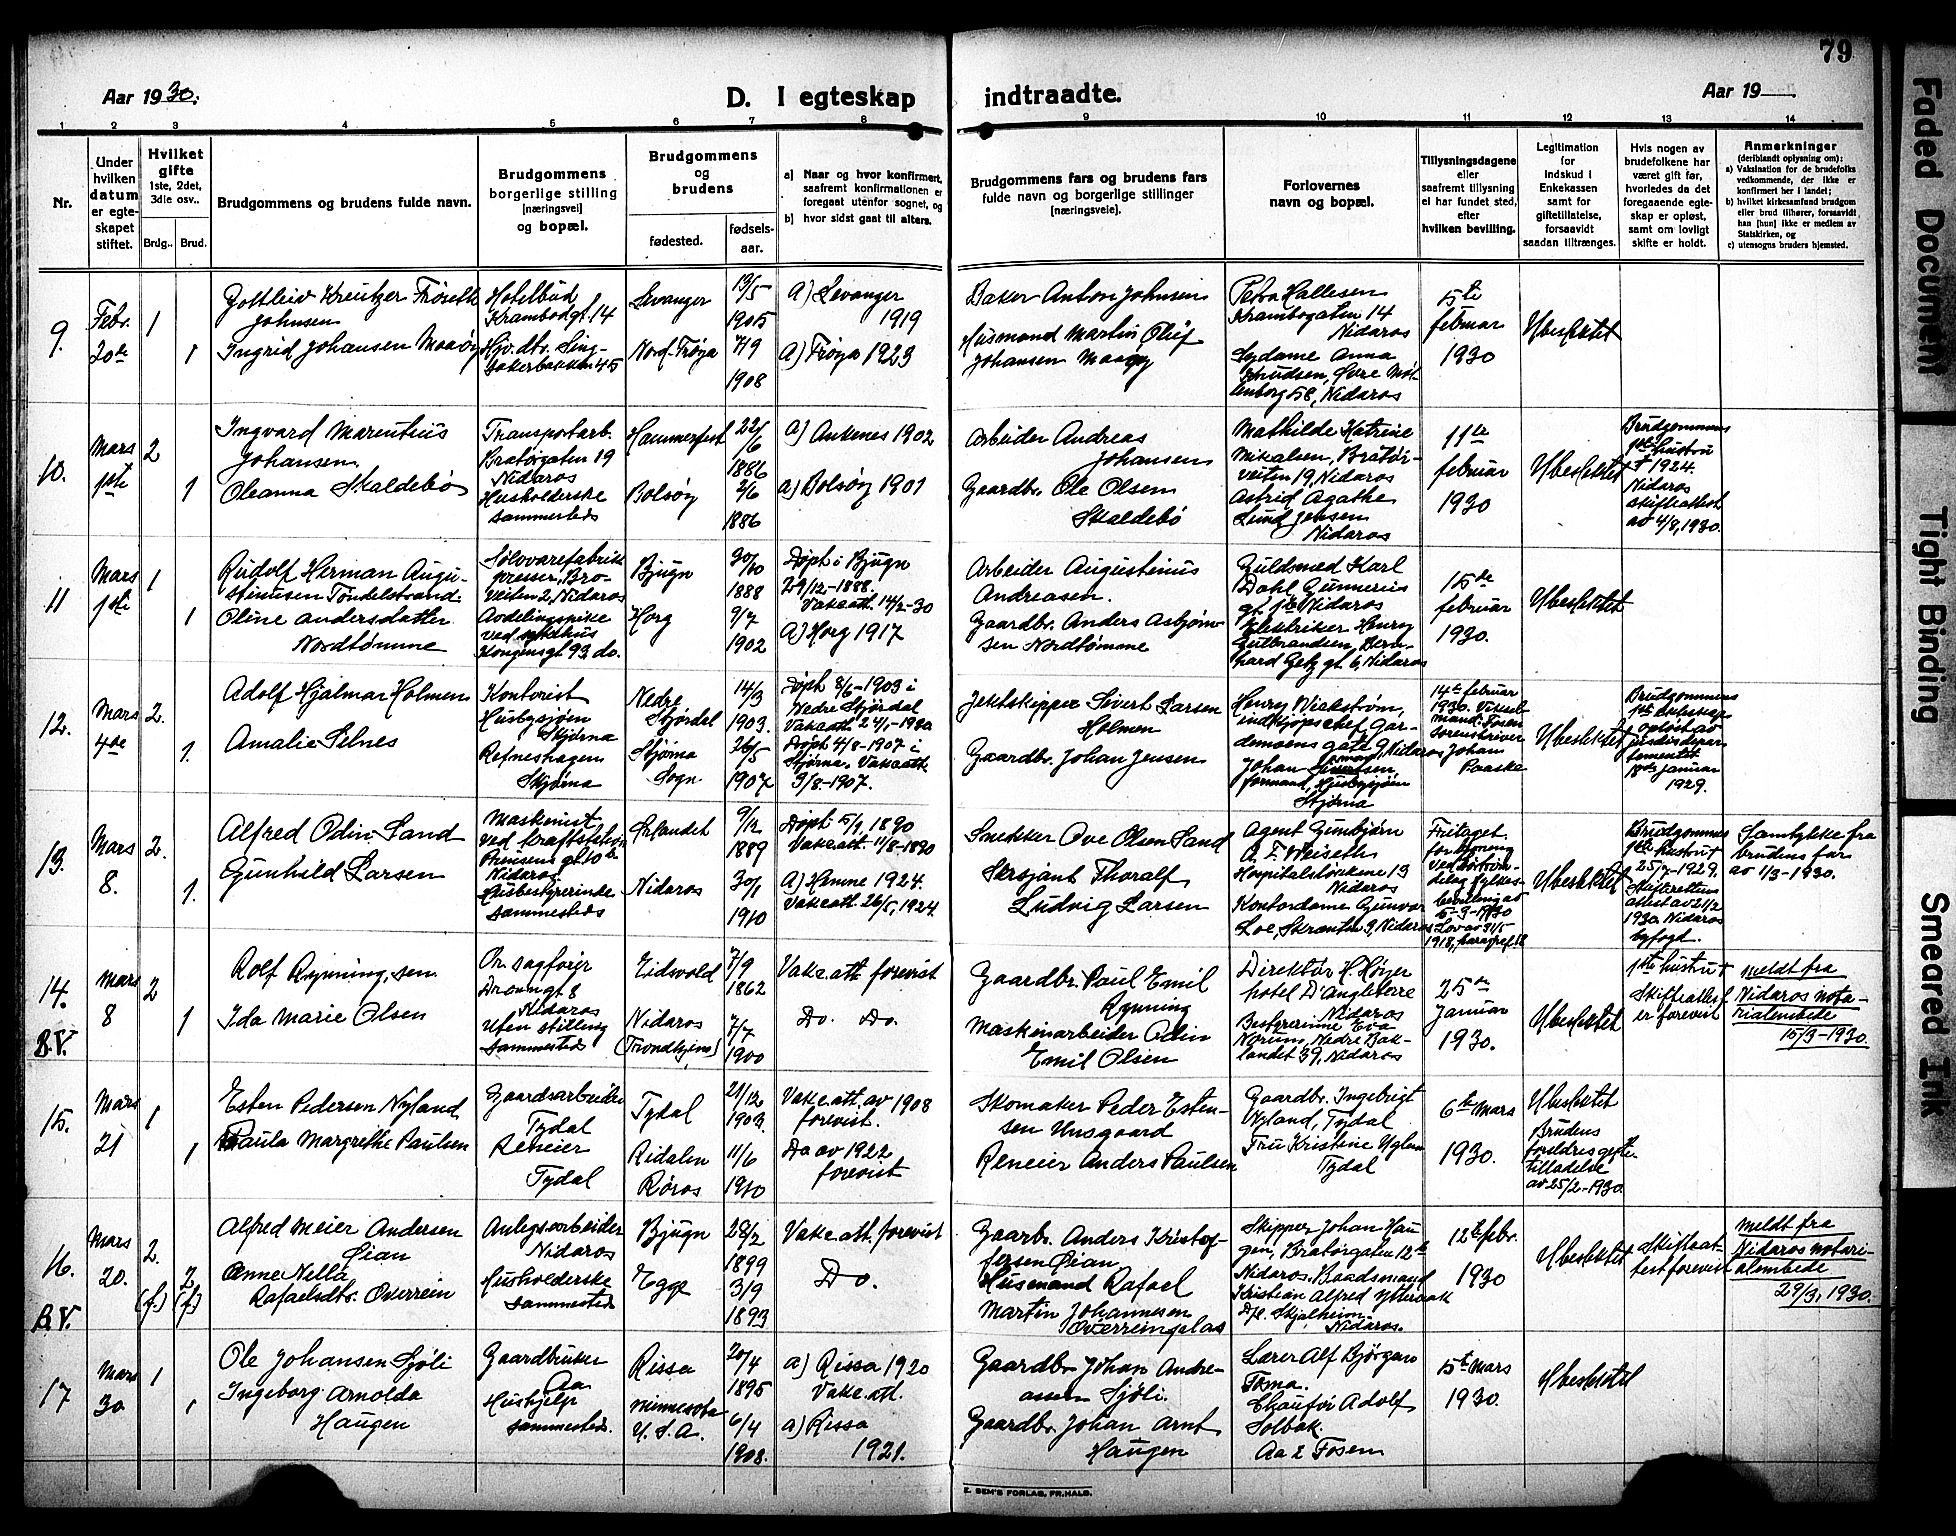 79
Aar 1930.
D. I egteskap indtraadte.
Aar 19
1 2 3 4 5 6 7 8 9 10 11 12 13 14
Nr.
Under
hvilken
datum
er egte-
skapet
stiftet.
Hvilket
gifte
1ste, 2det,
3die osv..
Brdg.. Brud.
Brudgommens og brudens fulde navn.
Brudgommens
borgerlige stilling
[næringsvei]
og bopæl.
Brudgommens
og
brudens
fødested.
fødsels-
aar.
a) Naar og hvor konfirmert,
saafremt konfirmationen er
foregaat utenfor sognet, og
b) hvor sidst gaat til alters.
Brudgommens fars og brudens fars
fulde navn og borgerlige stillinger
[næringsveie].
Forlovernes
navn og bopæl.
Tillysningsdagene
eller
saafremt tillysning
ei har fundet sted,
efter
hvilken bevilling.
Legitimation
for
Indskud i
Enkekassen
samt for
giftetillatelse,
forsaavidt
saadan tiltrænges.
Hvis nogen av
brudefolkene har
været gift før,
hvorledes da det
foregaaende egte-
skap er opløst,
samt om lovligt
skifte er holdt.
Anmerkninger
(deriblandt oplysning om):
a) Vaksination for de brudefolks
vedkommende, der ikke er
konfirmert her i landet;
b) hvilket kirkesamfund brudgom
eller brud tilhører, forsaavidt
han [hun] ikke er medlem av
Statskirken, og
c) utensogns bruders hjemsted.
9.
Febr.
20de
1
1
Gottleiv Kreutzer Frøseth
Johnsen
Ingrid Johansen Maaøy
Hotelbud
Krambodgt. 14
Levanger
Nord-Frøya
19/5
1905
7/9
1908
a) Levanger
1919
a) Frøya 1923
Baker Anton Johnsen
Husmand Martin Oluf
Johansen Maaøy
Petra Hallesen
Krambogaten 14
Nidaros
Sydame Anna
Knudsen, Øvre Møl-
lenborg 58, Nidaros
15te
februar
1930
Ubeslektet
10.
Mars
1ste
2
1
Ingvard Marentius
Johansen.
Oleanna Skaldebø
Transportarb.
Bratørgaten 19
Nidaros
Husholderske
sammesteds
Hammerfest
Bolsøy
22/6
1886
2/6
1886
a) Ankenes 1902
a) Bolsøy 1901
Arbeider Andreas
Johansen
Gaardbr. Ole Olsen
Skaldebø
Mathilde Katrine
Mikalsen, Bratør-
veiten 19, Nidaros
Astrid Agathe
Lund Jensen
Nidaros
11te
februar
1930
Ubeslektet
Brudgommens
1ste hustru
† 1924.
Nidaros
skifteattest
av 4/2, 1930.
11
Mars
1ste
1
1
Rudolf Herman Augu-
stinusen Tøndelstrand.
Oline Andersdatter
Nordtømme
Sølvvarefabrik
presser, Bro-
veiten 2, Nidaros
Avdelingspike
ved sykehus
Kongensgt. 93, do.
Bjugn
Horg
30/10
1888
9/7
1902
Døpt i Bjugn
29/12-1888.
Vakc.att. 14/2-30
a) Horg 1917
Arbeider Augustinus
Andreasen.
Gaardbr. Anders Asbjørn-
sen Nordtømme
Guldsmed Karl
Dahl, Gunnerius
Nidaros
Elektriker Henry
Gulbrandsen, Bern-
hard Getz gt. 6, Nidaros
15de
februar
1930.
Ubeslektet
12.
Mars
4de
2.
1.
Adolf Hjalmar Holmen
Amalie Selnes
Kontorist
Husbysjøen
Stjørna
Refneshagen
Stjørna
Nedre
Stjørdal
Stjørna
Sogn
14/3
1903.
26/5
1907
Døpt 8/6-1903 i
Nedre Stjørdal
Døpt 4/8-1907 i
Stjørna. Vakc.att.
9/8-1907.
Jektskipper Sivert Larsen
Holmen
Gaardbr. Johan Jensen
Henry Wickstrøm,
indkjøpschef, Gar-
demoens gate 9, Nidaros
Johan
formand, Husbysjøen
Stjørna
14de februar
1930. Viksel-
mand: Fosen
sorenskriver
Johan
Paaske
Ubeslektet
Brudgommens
1ste ekteskap
opløst av
justisdepar-
tementet
januar
1929.
13.
Mars
8.
2.
1.
Alfred Odin Sand
Gunhild Larsen
Maskinist
ved kraftstation
Nidaros
Husbestyrerinde
sammesteds
Ørlandet
Nidaros
9/12
1889
30/1
1910
Døpt 5/1, 1890
Vakc.att. 11/8-1890
a) Hemne 1924.
Vakc.att. 26/5, 1924.
Snekker Ove Olsen Sand
Sersjant Thoralf
Ludvig Larsen
Agent Gunbjørn
Weiseth
Hospitalsløkkene 13
Nidaros
Kontordame Gunvor
Loe, Nidaros
Fritaget
for lysning
ved Sørtrøn-
delag fylkes-
bevilling av
5-3-1930
Lov av 31/5
1918, paragraf 12
Ubeslektet
Brudgommens
1ste hustru †
25/7-1929.
Skifterettens
attest av 21/2
1930. Nidaros
byfogd.
Samtykke fra
brudens far
av 1/3-1930.
14.
B.V.
Mars
8
2
1
Rolf Rynning, sen.
Ida Marie Olsen
Or. sagfører
Nidaros
Uten stilling
sammesteds
Eidsvold
Nidaros
(Trondhjem)
7/9
1862
7/7
1900
Vakc.att. forevist
Do. Do.
Gaardbr. Paul Emil
Rynning
Maskinarbeider Odin
Emil Olsen
Direktør H. Høyer
hotel D'Angleterre
Nidaros
Bestyrerinne Eva
Norum, Nedre Bak-
landet 39, Nidaros
25de
Januar
1930.
Ubeslektet
1ste hustru †
Skifteattest
er forevist
Meldt fra
Nidaros nota-
rialembede
15/3-1930.
15.
Mars
21
1
1
Esten Pedersen Nyland
Paula Margrethe Paulsen
Gaardsarbeider
Tydal
Reneier
Tydal
Tydal
Ridalen
Røros
21/12
1903.
11/6
1910
Vakc.att. av 1908
forevist.
Do av 1922
forevist
Skomaker Peder Esten-
sen Unsgaard
Reneier Anders Paulsen
Gaardbr. Ingebrigt
Nyland, Tydal
Fru Kristine Uglem
Tydal
6te Mars
1930.
Ubeslektet
Brudens
forældres gifte-
tilladelse
av 25/2-1930.
16.
B.V.
Mars
20.
2.
(f.)
2
(f.)
Alfred Meier Andersen
Øian
Anne Nella
Rafaelsdtr. Overrein
Anlegsarbeider
Nidaros
Husholderske
sammesteds
Bjugn
Egge
28/2
1899
3/9
1893
Vakc.att. forevist
Do.
Gaarbr. Anders Kristof-
fersen Øian.
Husmand Rafael
Martin Johannesen
Overreinsplas
Skipper Johan Hau
gen, Bratørgaten 12b
Nidaros. Baadsmand
Kristian Alfred Ytterbak
D/S. Skjalheim,
Nidaros.
12te febr.
1930
Ubeslektet
Skifteat-
test forevist
Meldt fra
Nidaros notari-
alembede
29/3, 1930.
17
Mars
30
1
1
Ole Johansen Sjøli
Ingeborg Arnolda
Haugen
Gaardbruker
Aa
Hushjelp
sammesteds.
Rissa
Minnesota
U.S.A.
20/4
1895
6/4
1908.
a) Rissa 1920
Vakc.att.
a) Rissa
1921.
Gaardbr. Johan Andre-
assen Sjøli.
Gaardbr. Johan Arnt
Haugen
Lærer Alf Bjørgan
Foma.
Chauffør Adolf
Solbak.
Aa i Fosen
15de Mars
1930.
Ubeslektet
E. SEM'S FORLAG, FR.HALD.
Faded Document
Tight Binding
Smeared Ink